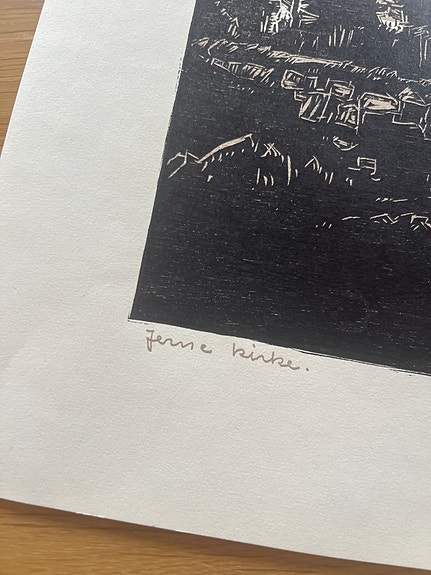 Jerne kirke.